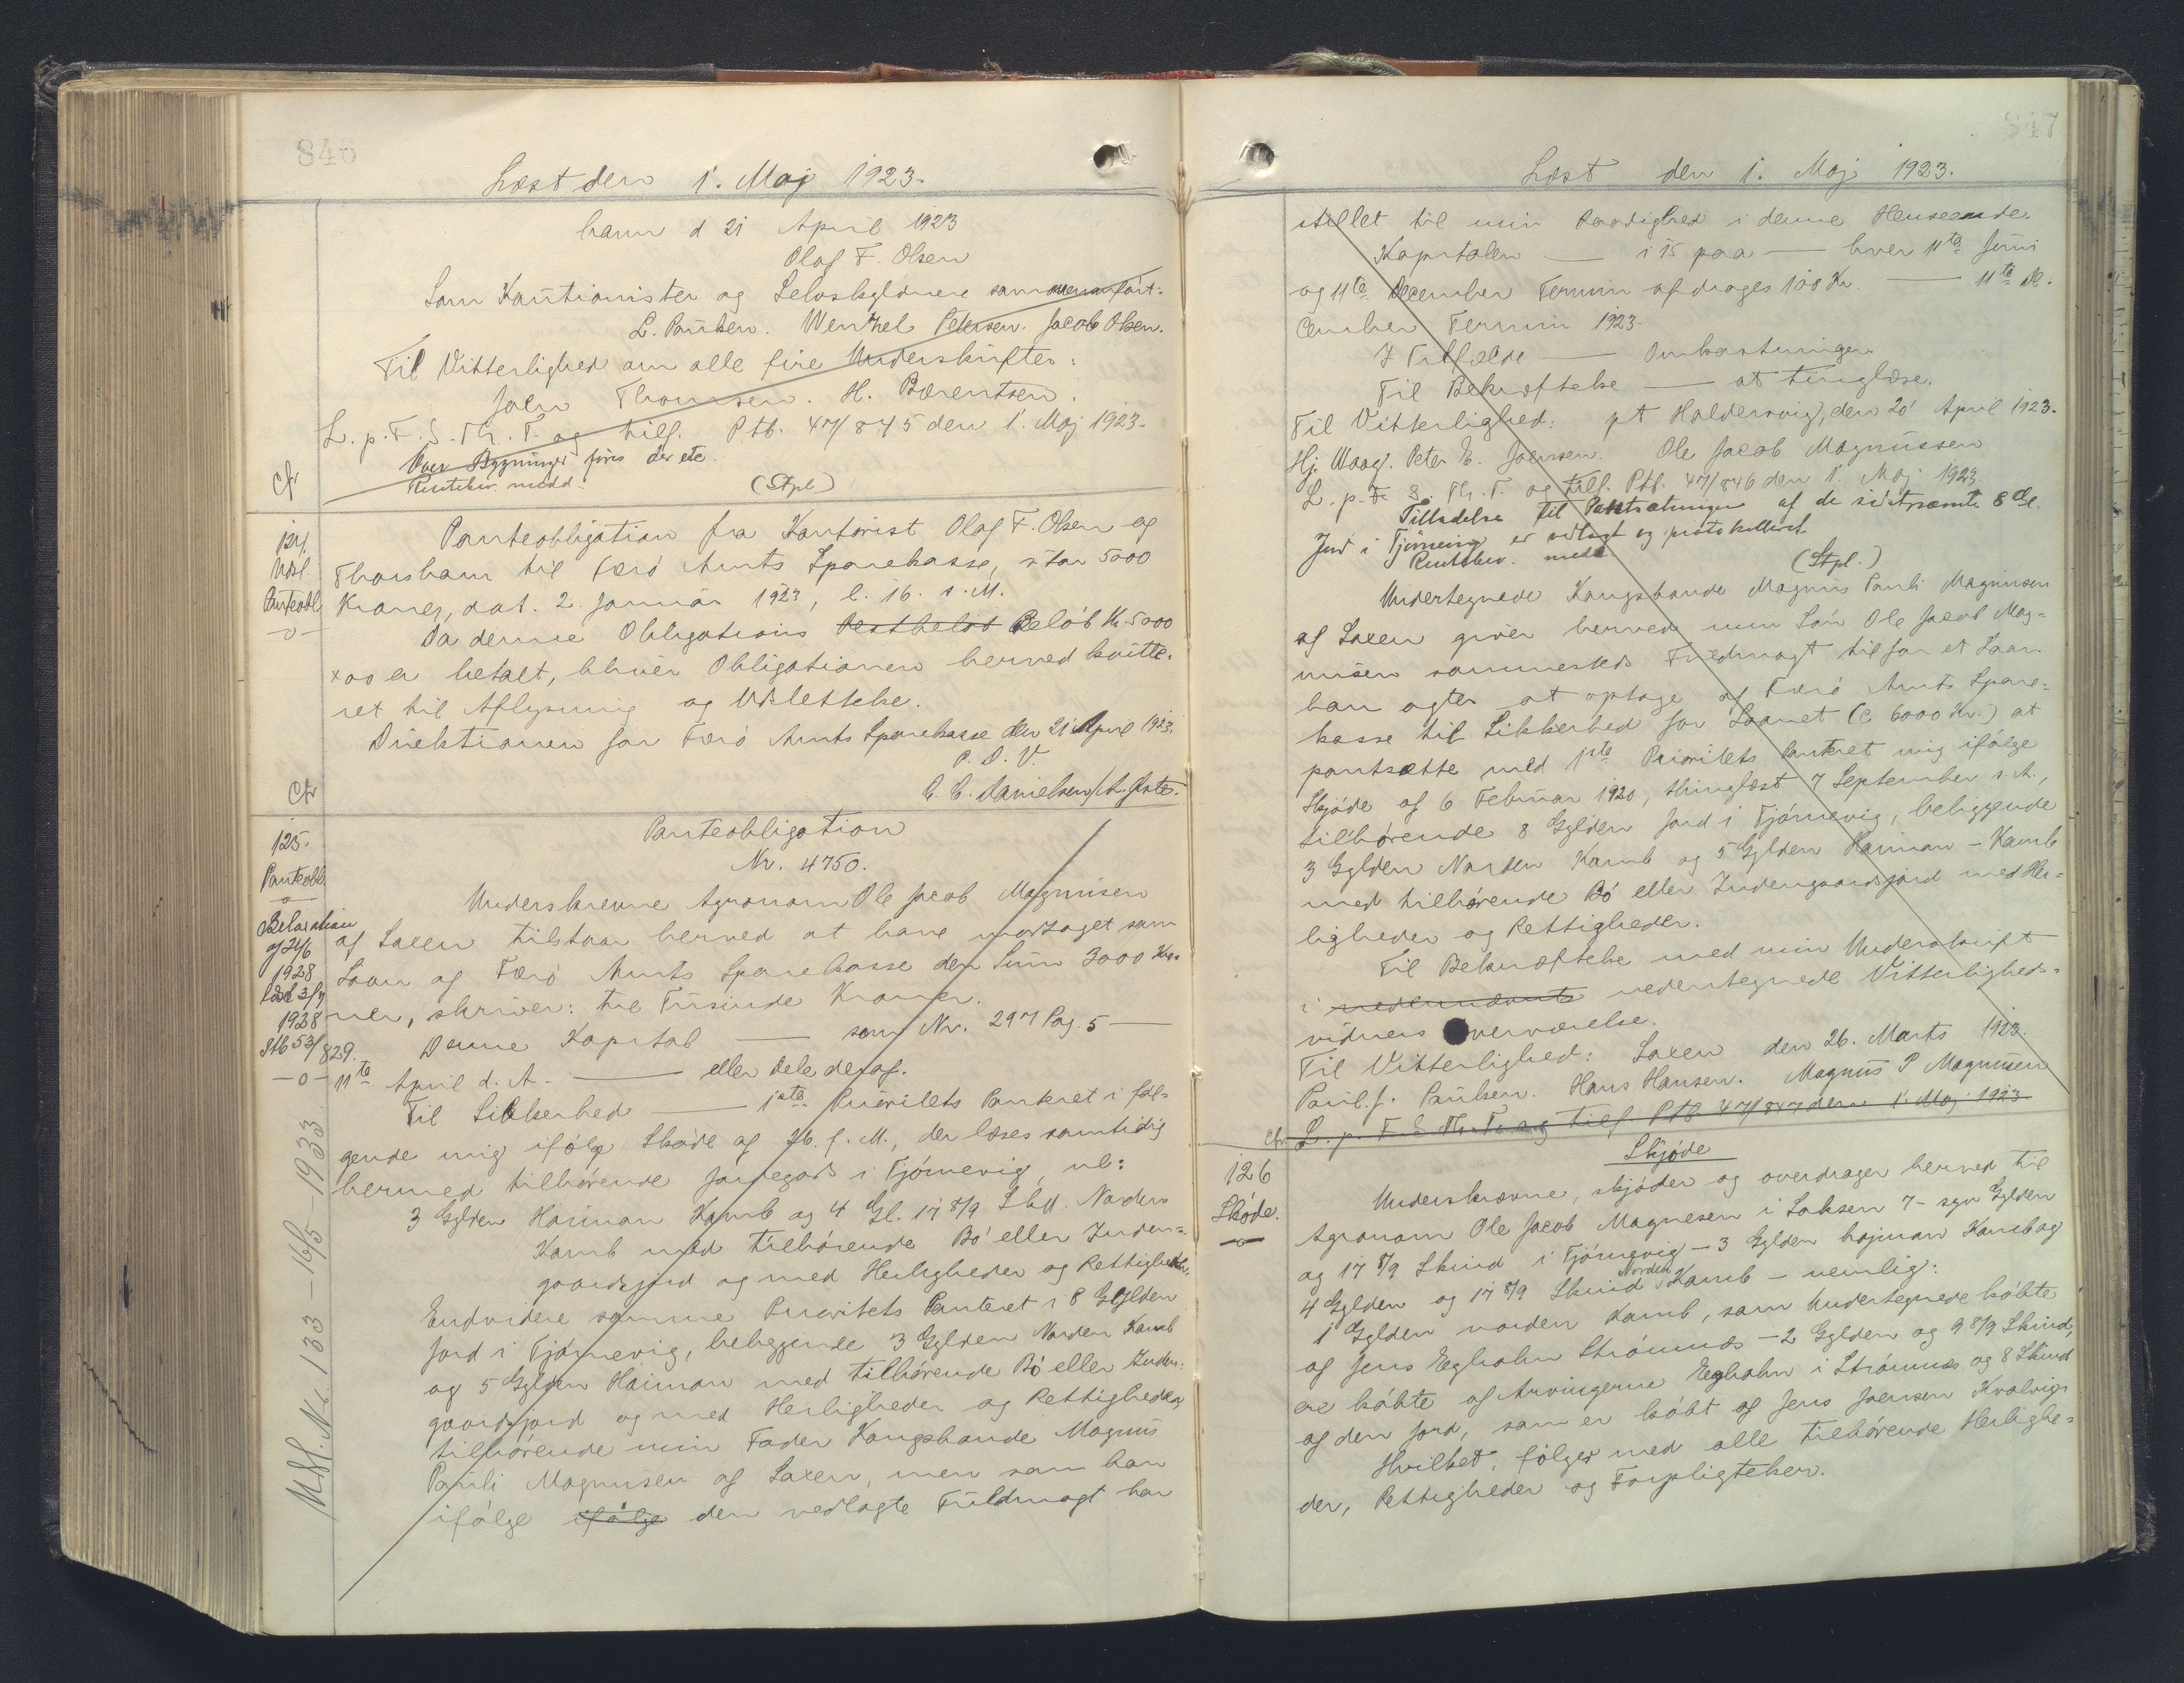 846
Læst den 1. Maj 1923.
havn d 21 April 1923
Olaf F. Olsen
Som Kautionister og Selvskyldnere sammenført:
L. Poulsen. Wenzel Petersen. Jacob Olsen.
Til Vitterlighed om alle fire Underskrifter:
John Thomsen. H. Bærentsen.
L. p. F. S. Th. T. og tilf. Ptb. 47/845 den 1. Maj 1923.
Over Bygninger føres der etc.
Cfr
Rentebev. medd.
(Stpl)
124.
Udsl.
Panteobl.
-o-
Panteobligation fra Kontorist Olaf F. Olsen og
Thorshavn til Færø Amts Sparekasse, stor 5000
Kroner, dat. 2. Januar 1923, l. 16. s. M.
Da denne Obligations Restbeløb Beløb Kr. 5000
x oo er betalt, bliver Obligationen herved kvitte-
ret til Aflysning og Udslettelse.
Direktionen for Færø Amts Sparekasse den 21 April 1923.
P. D. V.
Cfr
C. C. Danielsen/A.
125.
Panteobl.
-o-
Relaxation
af 24/6
1928
læst 3/7
1928
Stb 53/829.
-o-
Udsl. No 133 - 16/5 - 1933
Panteobligation
Nr. 4750.
Underskrevne Agronom Ole Jacob Magnusen
af Saxen tilstaar herved at have modtaget som
Laan af Færø Amts Sparekasse den Sum 3000 Kro-
ner, skriver: tre Tusinde Kroner.
Denne Kapital — som Nr. 297 Pag. 5 —
11te April d. A. — eller dele deraf.
Til Sikkerhed — 1ste Prioritets Panteret i føl-
gende mig ifølge Skøde af 26. f. M., der læses samtidig
hermed tilhørende Jordegods i Tjörnevig, nl:
3 Gylden Haiman Kamb og 4 Gl. 17 8/9 Skd. Norden
Kamb med tilhørende Bö eller Inden-
gaardsjord og med Herligheder og Rettigheder,
Endvidere samme Prioritets Panteret i 8 Gylden
Jord i Tjörnevig, beliggende 3 Gylden Norden Kamb
og 5 Gylden Haiman med tilhørende Bö eller Inden-
gaardsjord og med Herligheder og Rettigheder
tilhørende min Fader Kongsbonde Magnus
Pauli Magnusen af Saxen, men som han
ifølge ifølge den vedlagte Fuldmagt har
847
Læst den 1. Maj 1923.
stillet til min Raadighed i denne Henseende.
Kapitalen — i 15 paa — hver 11te Juni
og 11te December Termin afdrages 100 Kr. — 11te De-
cember Termin 1923.
I Tilfælde — Omkostninger.
Til Bekræftelse — at tinglæse.
Til Vitterlighed: pt Haldersvig, den 20 April 1923.
Hj. Waag. Peter E. Joensen. Ole Jacob Magnussen
L. p. F. S. Th. T. og tilf. Ptb. 47/846 den 1. Maj 1923.
Tilladelse til Pantsætningen af de sidstnævnte 8 Gl.
Jord i Tjörnevig er vedlagt og protokolleret.
Rentebev. medd
(Stpl.)
Undertegnede Kongsbonde Magnus Pauli Magnusen
af Saxen giver herved min Søn Ole Jacob Mag-
nusen sammesteds Fuldmagt til for et Laan
han agter at optage af Færø Amts Spare-
kasse til Sikkerhed for Laanet (c 6000 Kr.) at
pantsætte med 1ste Prioritets Panteret mig ifølge
Skjøde af 6 Februar 1920, thinglæst 7 September s. A.,
tilhørende 8 Gylden Jord i Tjörnevig, beliggende
3 Gylden Norden Kamb og 5 Gylden Haiman - Kamb
med tilhørende Bö eller Indengaardsjord med Her-
ligheder og Rettigheder.
Til Bekræftelse med min Underskrift
i nedennævnte nedentegnede Vitterligheds-
vidners Overværelse.
Til Vitterlighed: Saxen den 26. Marts 1923.
Poul. J. Poulsen. Hans Hansen. Magnus P Magnusen
Cfr. L. p. F. S. Th. T. og tilf. Ptb 47/847 den 1. Maj 1923
126
Skøde.
-o-
Skjøde
Underskrevne, skjøder og overdrager herved til
Agronom Ole Jacob Magnesen i Saksen 7 - syv Gylden
og 17 8/9 Skind i Tjörnevig - 3 Gylden hajman Kamb og
4 Gylden og 17 8/9 Skind Norden Kamb - nemlig:
1 Gylden norden Kamb, som Undertegnede købte
af Jens Egholm Strömnæs - 2 Gylden og 9 8/9 Skind,
ere købte af Arvingerne Egholm i Strömnæs og 8 Skind
af den Jord, som er købt af Jens Joensen Kvalvig.
Hvilket, følger med alle tilhørende Herlighe-
der, Rettigheder og Forpligtelser.